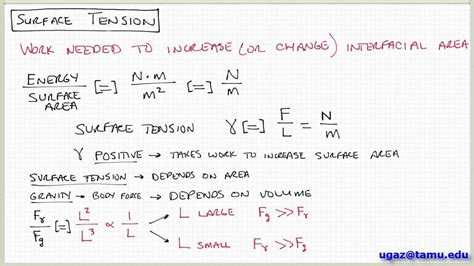 SURFACE TENSION
WORK NEEDED TO INCREASE (OR CHANGE) INTERFACIAL AREA
ENERGY / SURFACE AREA [=] N·m / m² [=] N / m
SURFACE TENSION γ [=] F / L = N / m
γ POSITIVE → TAKES WORK TO INCREASE SURFACE AREA
SURFACE TENSION → DEPENDS ON AREA
GRAVITY → BODY FORCE → DEPENDS ON VOLUME
Fγ / Fg [=] L² / L³ ∝ 1 / L
L LARGE Fg >> Fγ
L SMALL Fγ >> Fg
ugaz@tamu.edu